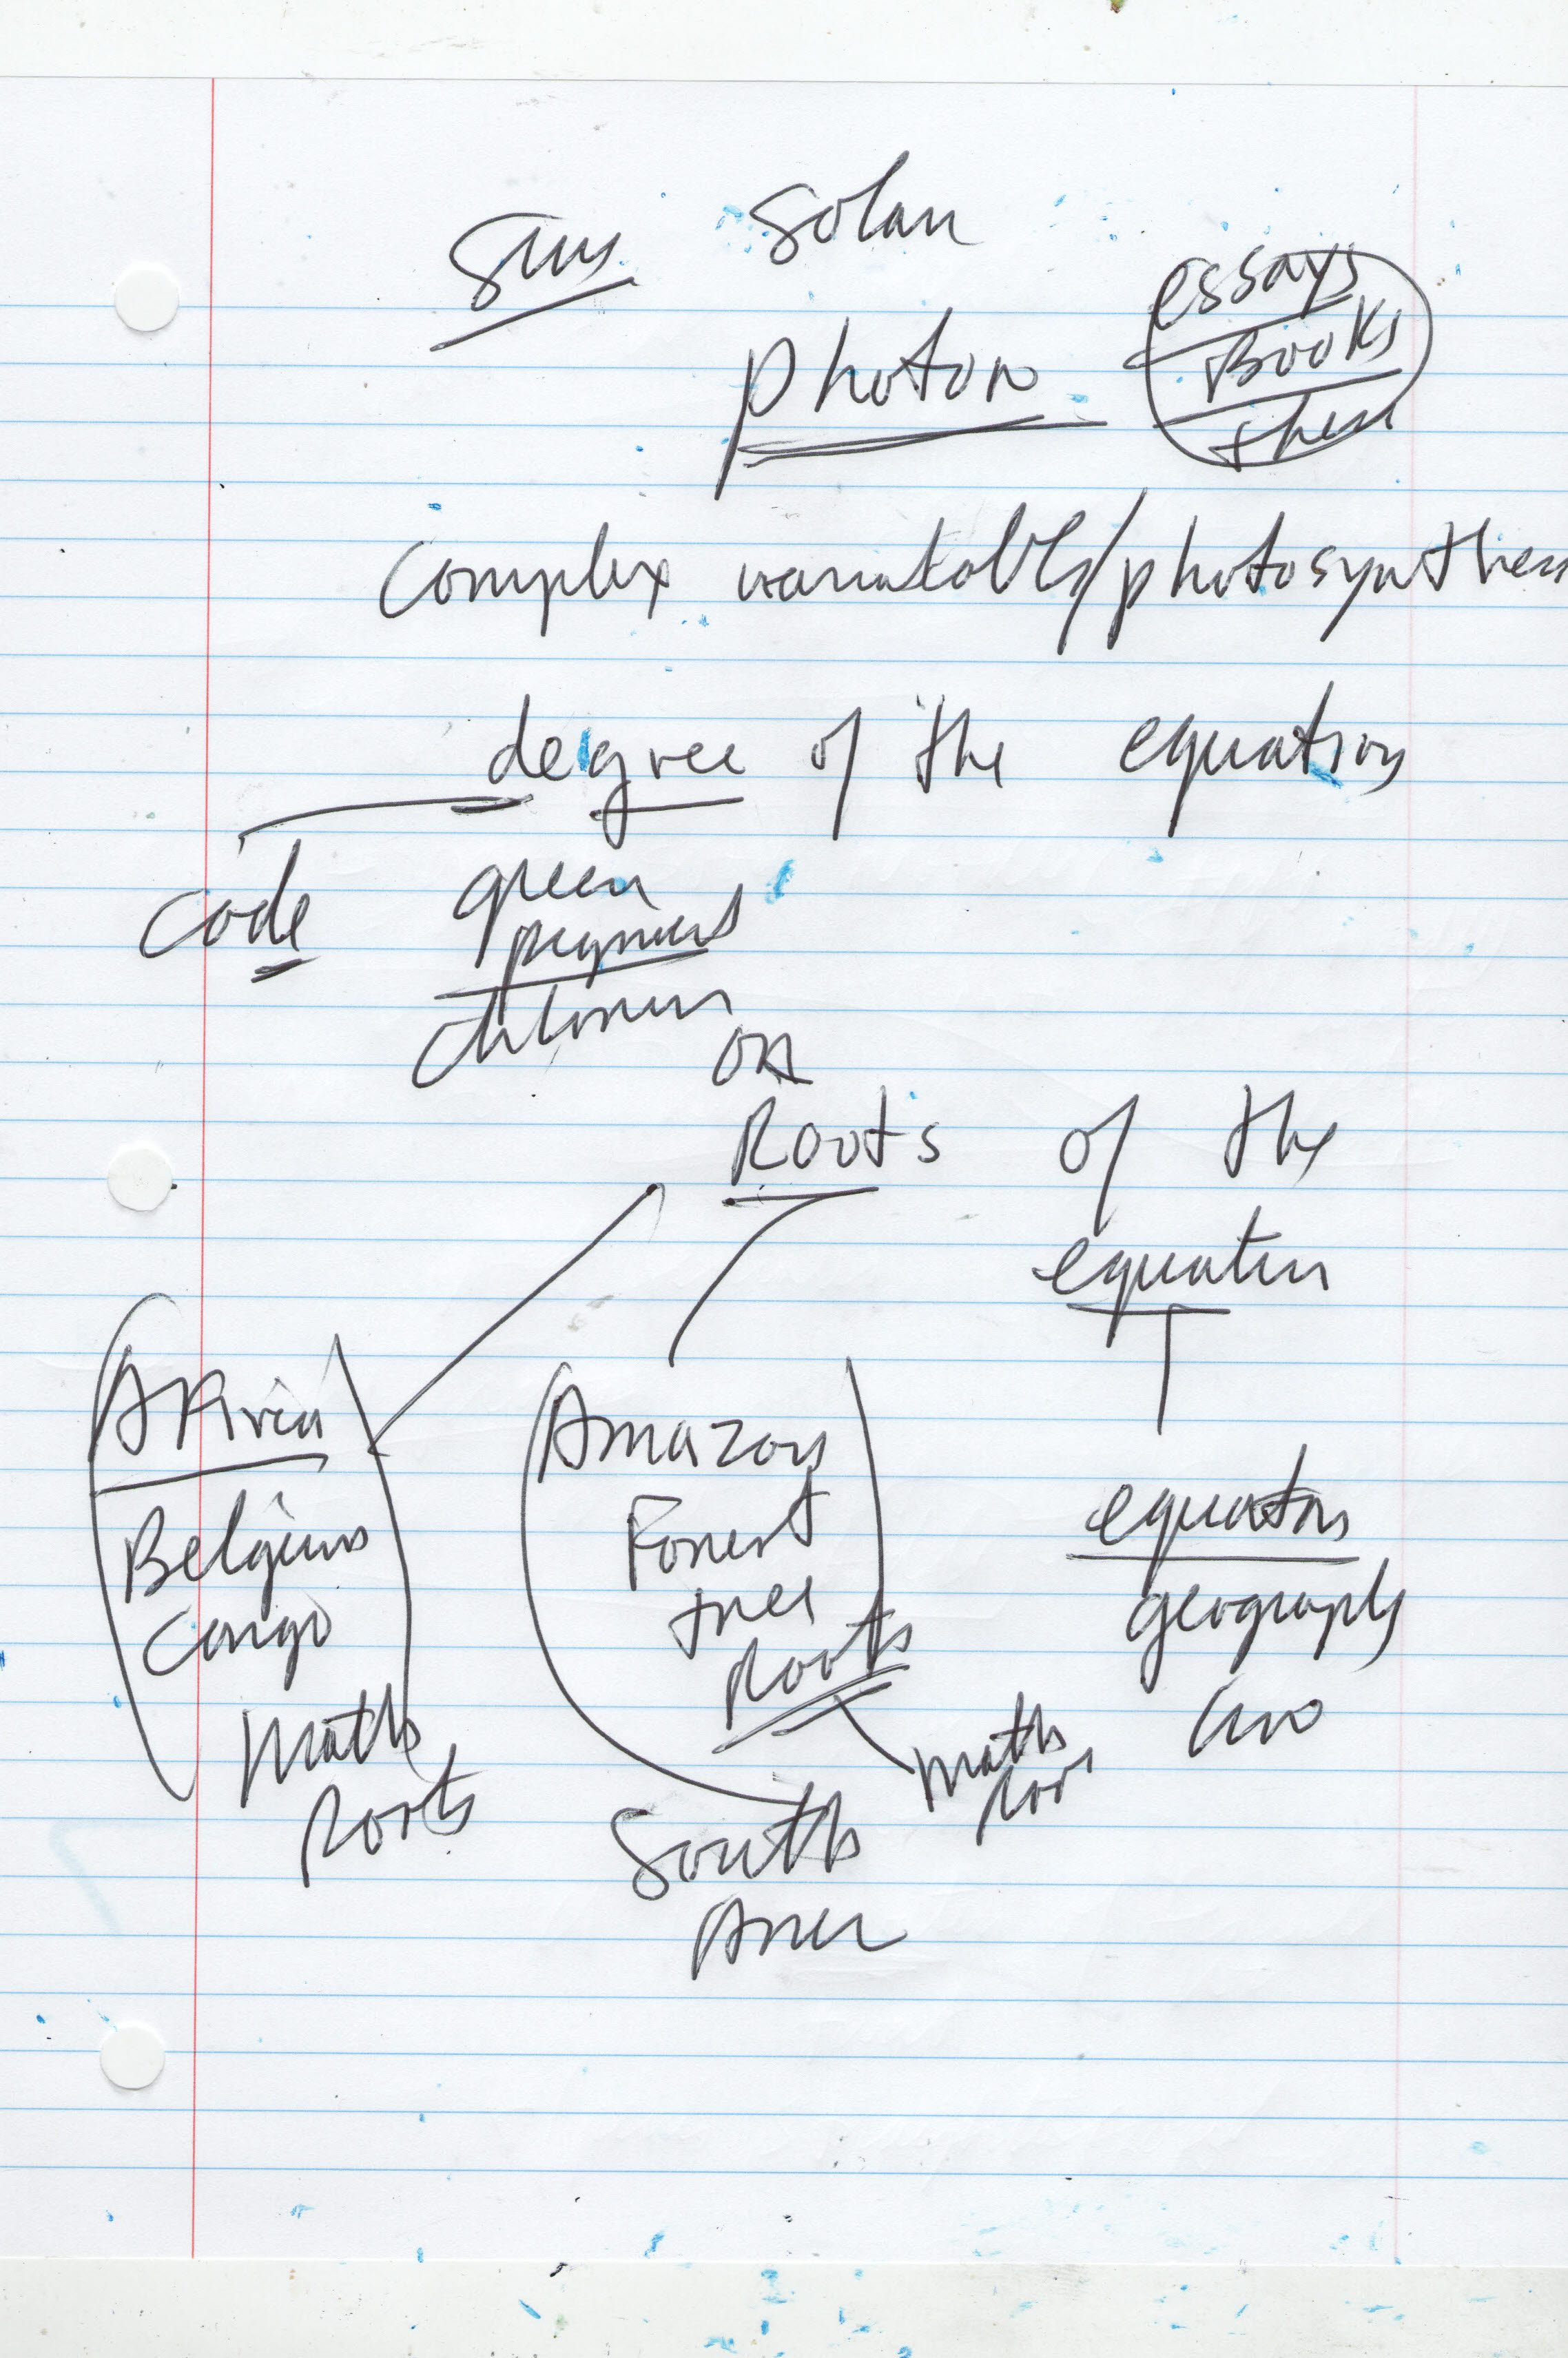 sun solar
photon
essays
Books
complex variable/photosynthesis
degree of the equation
code
green
pigment
or
Roots of the
equation
Africa
Belgium
Congo
Math
Roots
Amazon
Forest
tree
Roots
Math
South
Amer
equator
geography